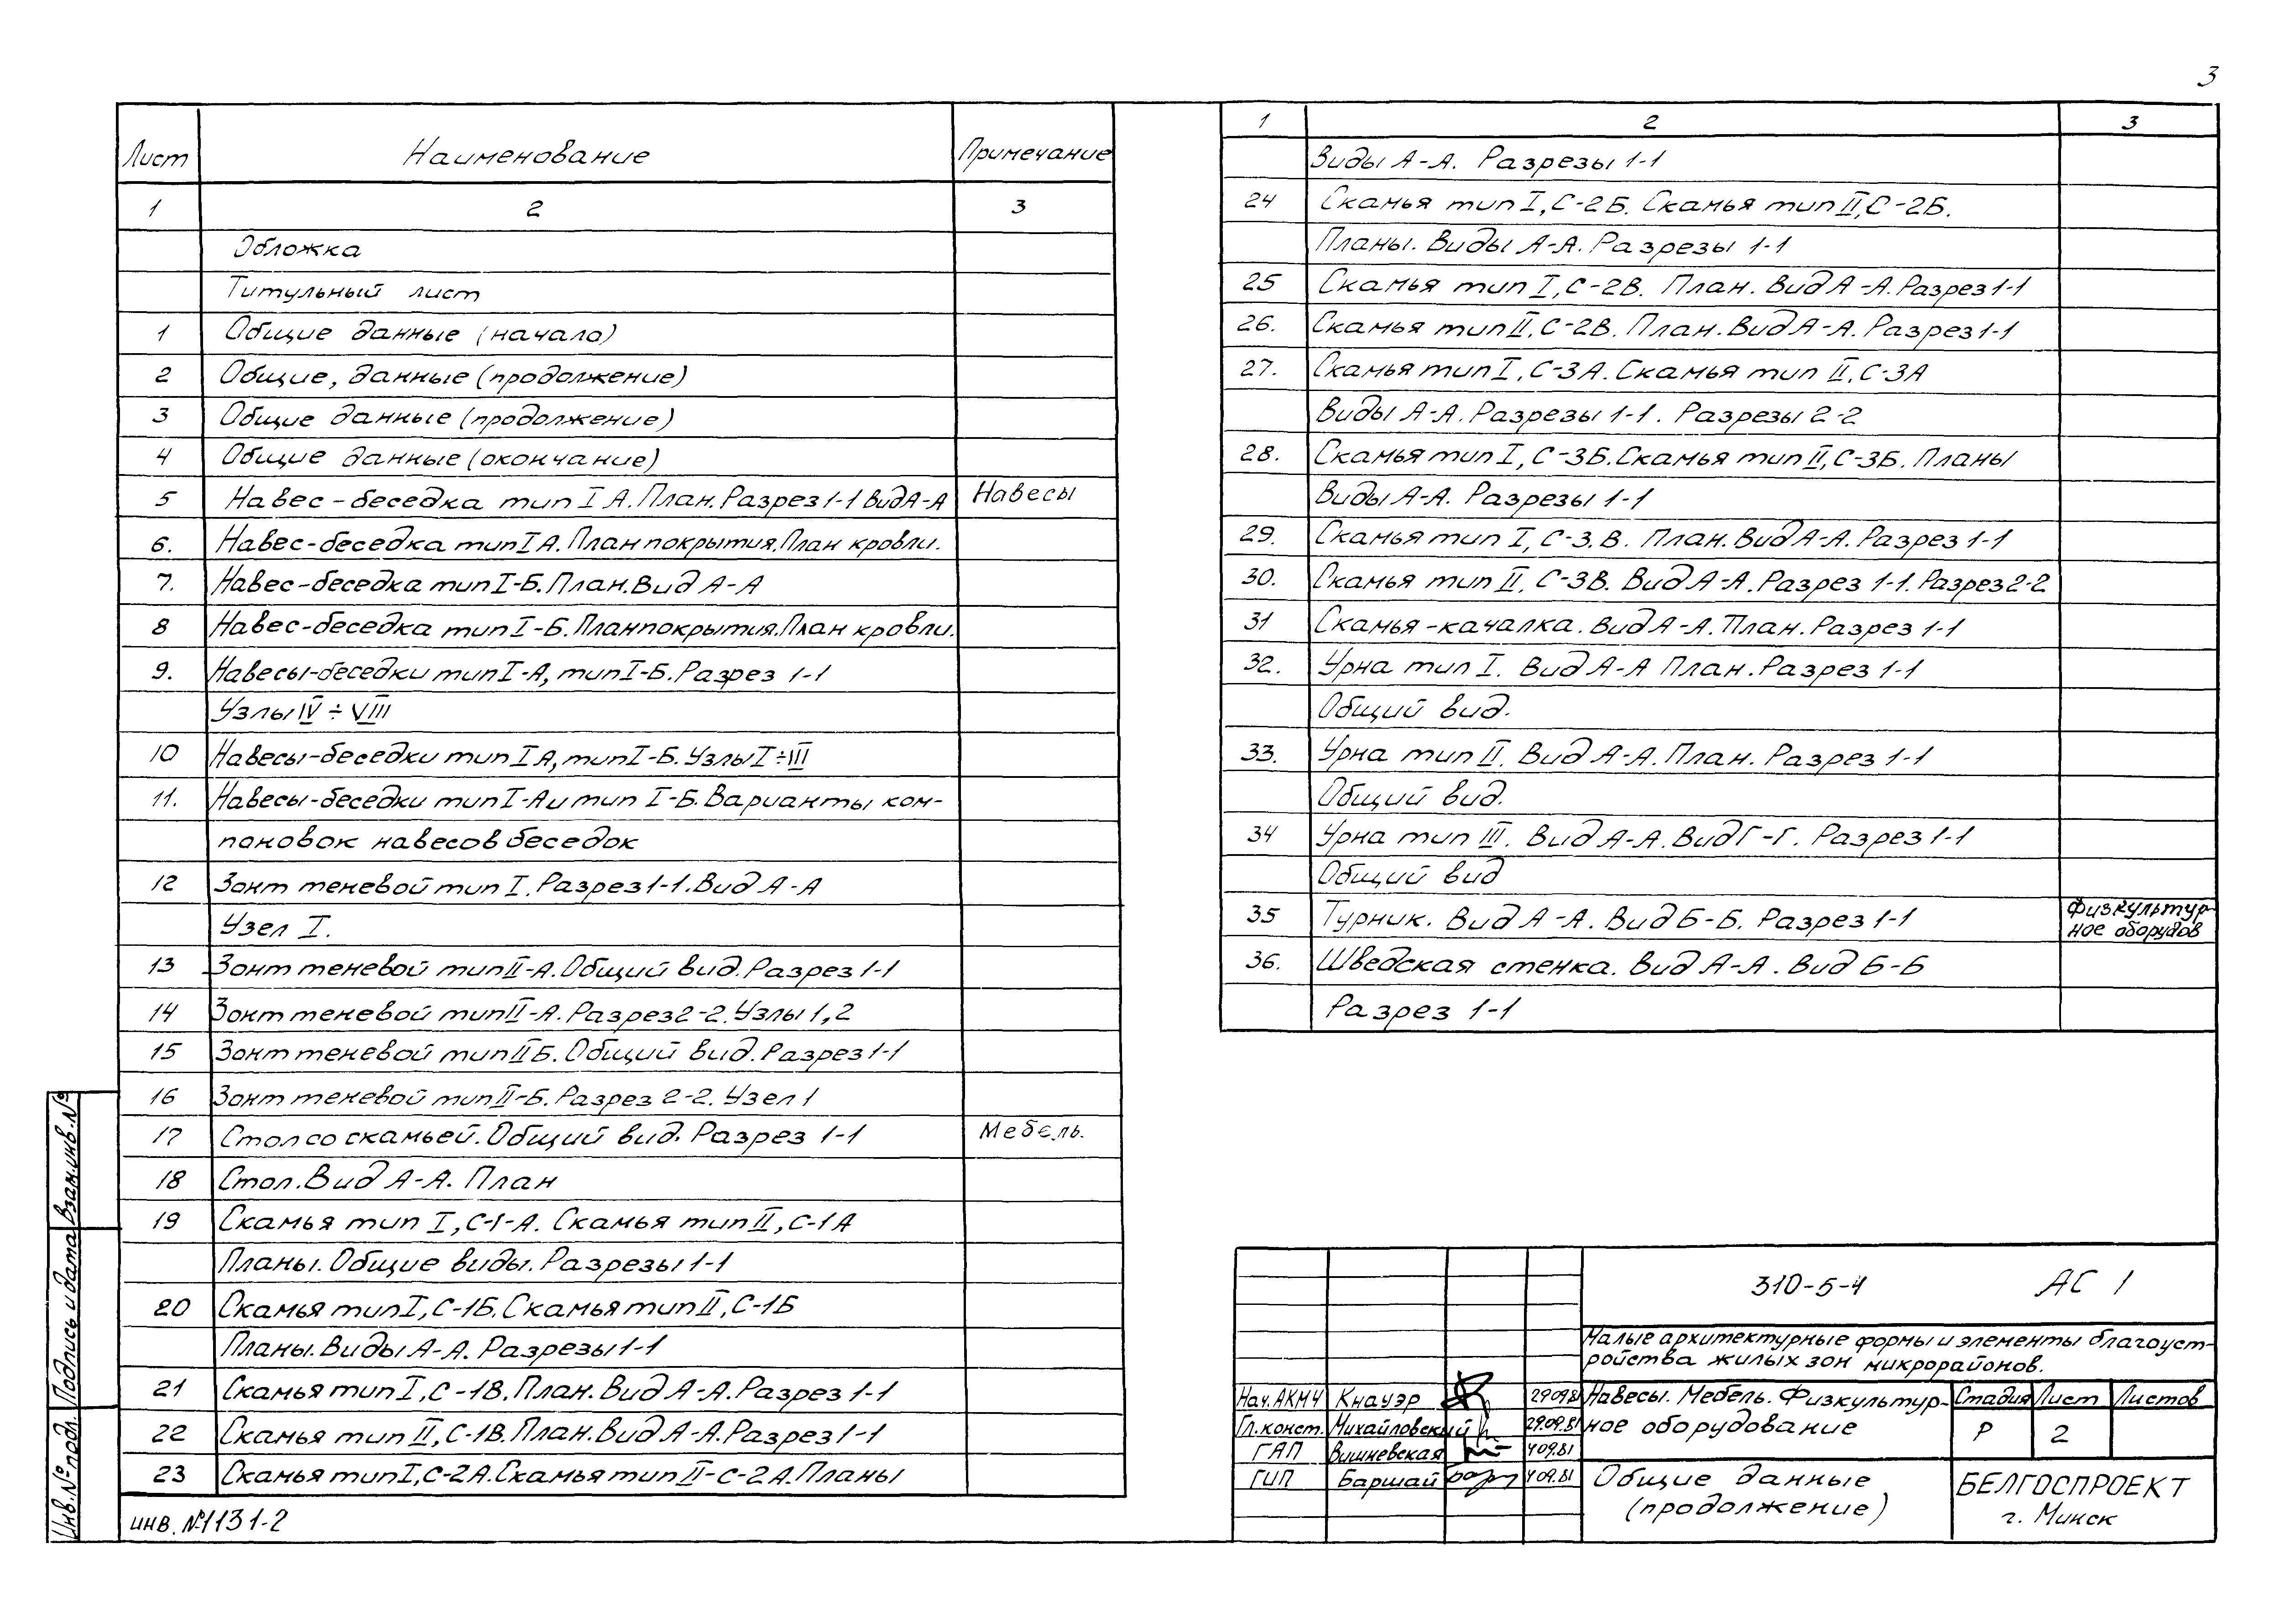 3
Лист Наименование Примечание
1 2 3
Обложка
Титульный лист
1 Общие данные (начало)
2 Общие, данные (продолжение)
3 Общие данные (продолжение)
4 Общие данные (окончание)
5 Навес-беседка тип I А. План. Разрез 1-1 Вид А-А Навесы
6. Навес-беседка тип I А. План покрытия. План кровли.
7. Навес-беседка тип I-Б. План. Вид А-А
8 Навес-беседка тип I-Б. План покрытия. План кровли.
9. Навесы-беседки тип I-А, тип I-Б. Разрез 1-1
Узлы IV ÷ VIII
10 Навесы-беседки тип I А, тип I-Б. Узлы I ÷ III
11. Навесы-беседки тип I-А и тип I-Б. Варианты ком-
пановок навесов беседок
12 Зонт теневой тип I. Разрез 1-1. Вид А-А
Узел I.
13 Зонт теневой тип II-А. Общий вид. Разрез 1-1
14 Зонт теневой тип II-А. Разрез 2-2. Узлы 1,2
15 Зонт теневой тип II Б. Общий вид. Разрез 1-1
16 Зонт теневой тип II-Б. Разрез 2-2. Узел 1
17 Стол со скамьей. Общий вид. Разрез 1-1 Мебель.
18 Стол. Вид А-А. План
19 Скамья тип I, С-1-А. Скамья тип II, С-1А
Планы. Общие виды. Разрезы 1-1
20 Скамья тип I, С-1Б. Скамья тип II, С-1Б
Планы. Виды А-А. Разрезы 1-1
21 Скамья тип I, С-1В. План. Вид А-А. Разрез 1-1
22 Скамья тип II, С-1В. План. Вид А-А. Разрез 1-1
23 Скамья тип I, С-2А. Скамья тип II-С-2А. Планы
инв. №1131-2
1 2 3
Виды А-А. Разрезы 1-1
24 Скамья тип I, С-2Б. Скамья тип II, С-2Б.
Планы. Виды А-А. Разрезы 1-1
25 Скамья тип I, С-2В. План. Вид А-А. Разрез 1-1
26. Скамья тип II, С-2В. План. Вид А-А. Разрез 1-1
27. Скамья тип I, С-3А. Скамья тип II, С-3А
Виды А-А. Разрезы 1-1. Разрезы 2-2
28. Скамья тип I, С-3Б. Скамья тип II, С-3Б. Планы
Виды А-А. Разрезы 1-1
29. Скамья тип I, С-3.В. План. Вид А-А. Разрез 1-1
30. Скамья тип II. С-3В. Вид А-А. Разрез 1-1. Разрез 2-2
31 Скамья-качалка. Вид А-А. План. Разрез 1-1
32. Урна тип I. Вид А-А План. Разрез 1-1
Общий вид.
33. Урна тип II. Вид А-А. План. Разрез 1-1
Общий вид.
34 Урна тип III. Вид А-А. Вид Г-Г. Разрез 1-1
Общий вид
35 Турник. Вид А-А. Вид Б-Б. Разрез 1-1 Физкультур-
ное оборудов
36. Шведская стенка. Вид А-А. Вид Б-Б
Разрез 1-1
310-5-4 АС 1
Малые архитектурные формы и элементы благоуст-
ройства жилых зон микрорайонов.
Нач. АКМЧ Кнауэр 29.09.81
Гл. конст. Михайловский 29.09.81
ГАП Вишневская 4 09.81
ГИП Баршай 4 09.81
Навесы. Мебель. Физкультур-
ное оборудование
Стадия Лист Листов
Р 2
Общие данные
(продолжение)
БЕЛГОСПРОЕКТ
г. Минск
Взам. инв. №
Подпись и дата
Инв. № подл.